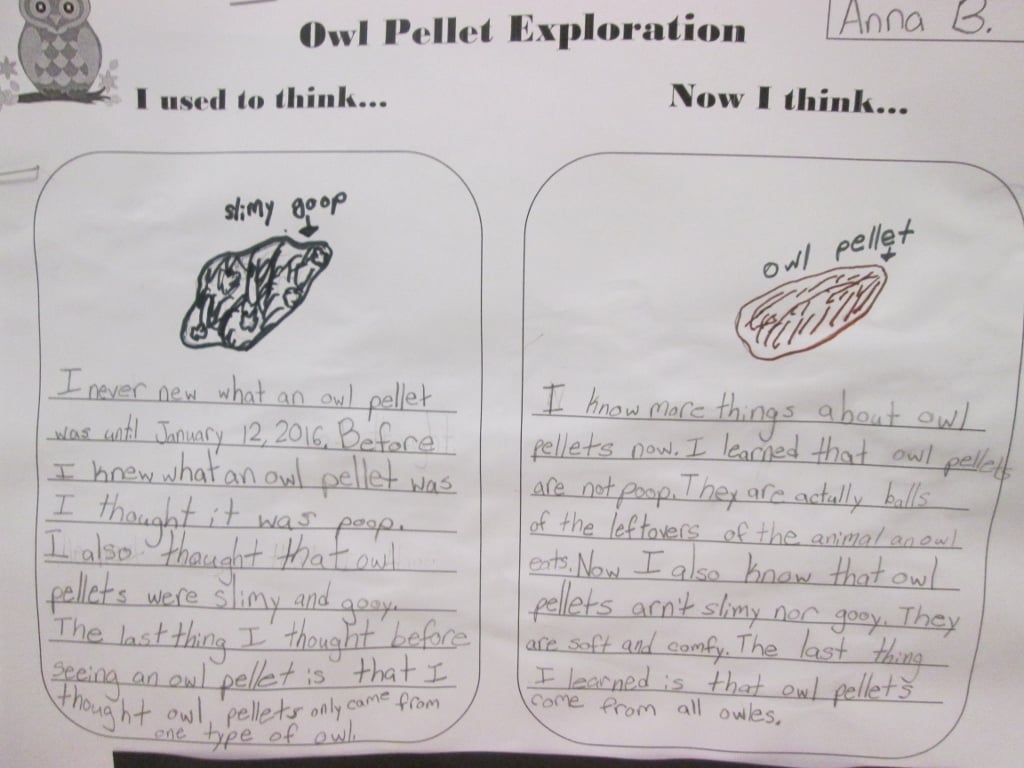 Owl Pellet Exploration
Anna B.
I used to think...
slimy goop
I never new what an owl pellet
was until January 12, 2016. Before
I knew what an owl pellet was
I thought it was poop.
I also thought that owl
pellets were slimy and gooy.
The last thing I thought before
seeing an owl pellet is that I
thought owl pellets only came from
one type of owl.
Now I think...
owl pellet
I know more things about owl
pellets now. I learned that owl pellets
are not poop. They are actully balls
of the leftovers of the animal an owl
eats. Now I also know that owl
pellets arn't slimy nor gooy. They
are soft and comfy. The last thing
I learned is that owl pellets
come from all owles.